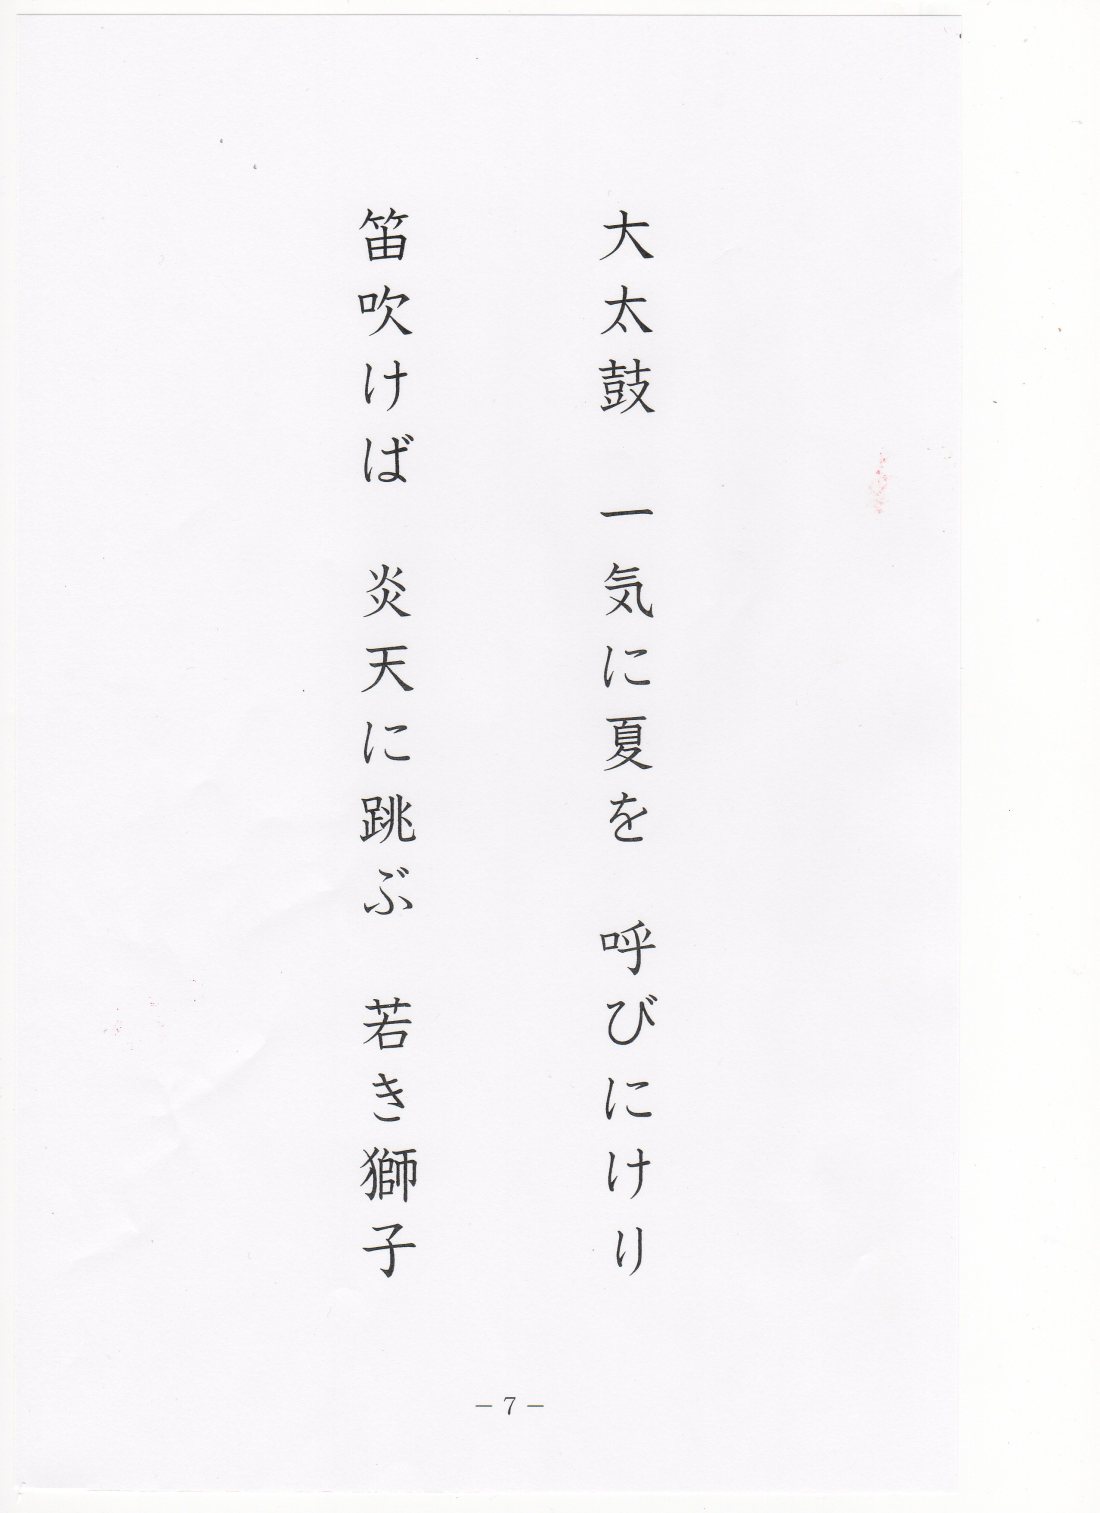 大太鼓　一気に夏を　呼びにけり
笛吹けば　炎天に跳ぶ　若き獅子
－7－